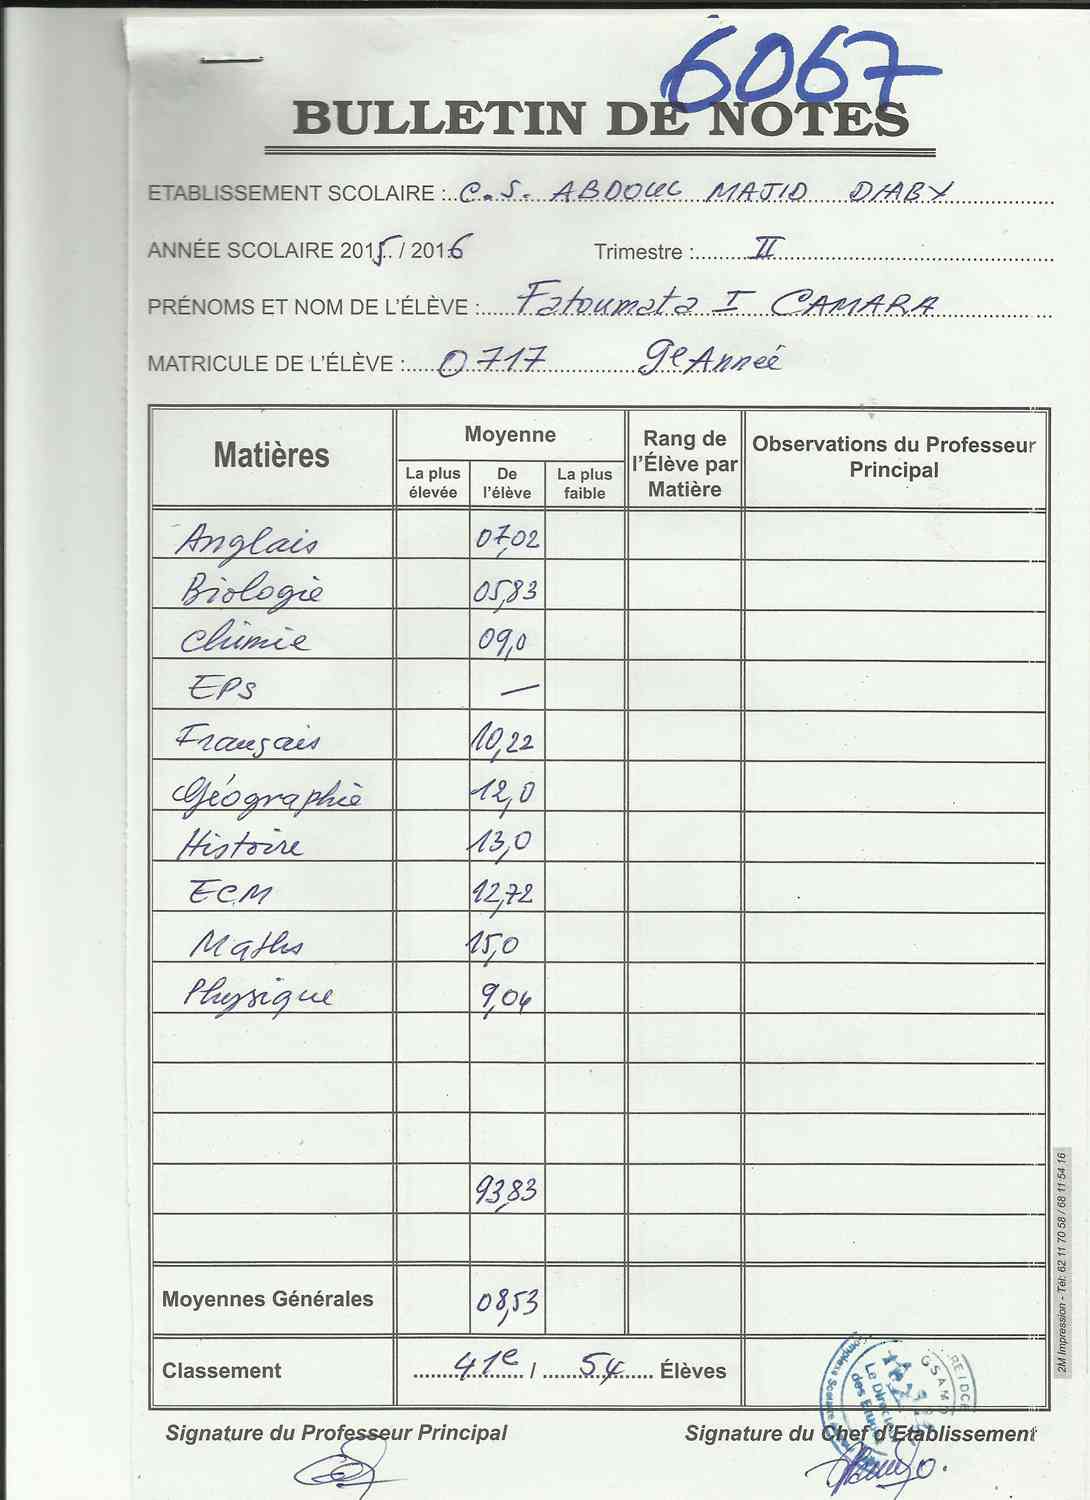 6067
BULLETIN DE NOTES
ETABLISSEMENT SCOLAIRE : C.S. ABDOUL MAJID DIABY
ANNÉE SCOLAIRE 2015 / 2016 Trimestre : II
PRÉNOMS ET NOM DE L'ÉLÈVE : Fatoumata I CAMARA
MATRICULE DE L'ÉLÈVE : 0717 9e Année
Matières
Moyenne
La plus élevée
De l'élève
La plus faible
Rang de l'Élève par Matière
Observations du Professeur Principal
Anglais 07,02
Biologie 05,83
Chimie 09,0
EPS —
Français 10,22
Géographie 12,0
Histoire 13,0
ECM 12,72
Maths 15,0
Physique 9,04
93,83
Moyennes Générales 08,53
Classement 41e / 54 Élèves
Signature du Professeur Principal
Signature du Chef d'Etablissement
Complexe Scolaire
Le Directeur
des Etudes
GSAMD
REIDCE
2M Impression - Tél: 62 11 70 58 / 68 11 54 16